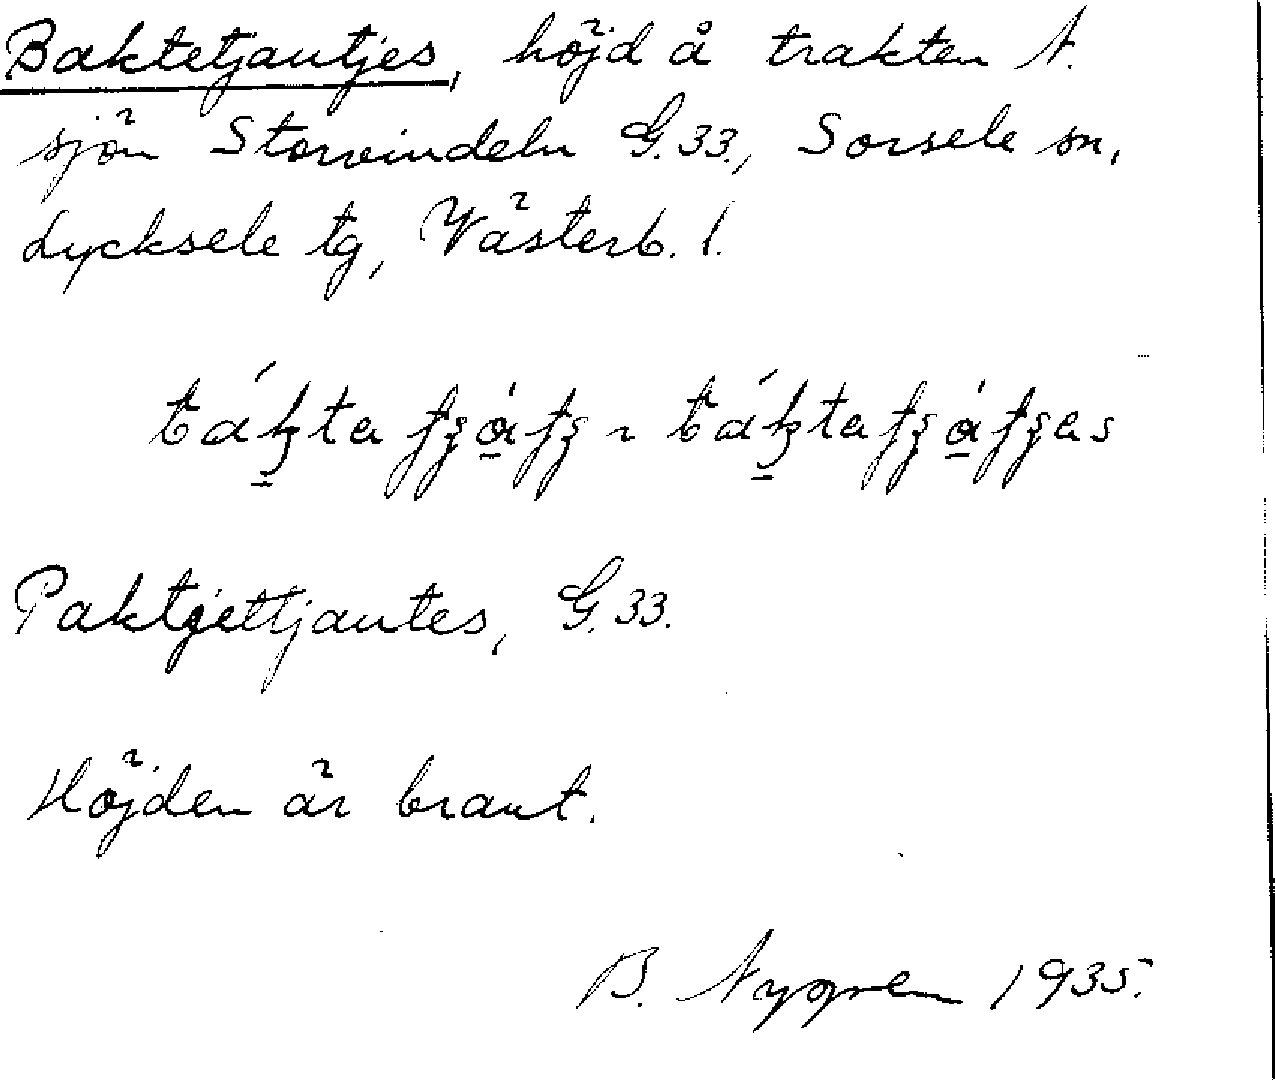 Baktetjautjes, höjd å trakten N.
sjön Storvindeln G.33, Sorsele sn,
Lycksele tg, Västerb. l.
Paktjettjautes, G.33.
Höjden är brant.
B. Nygren 1935.